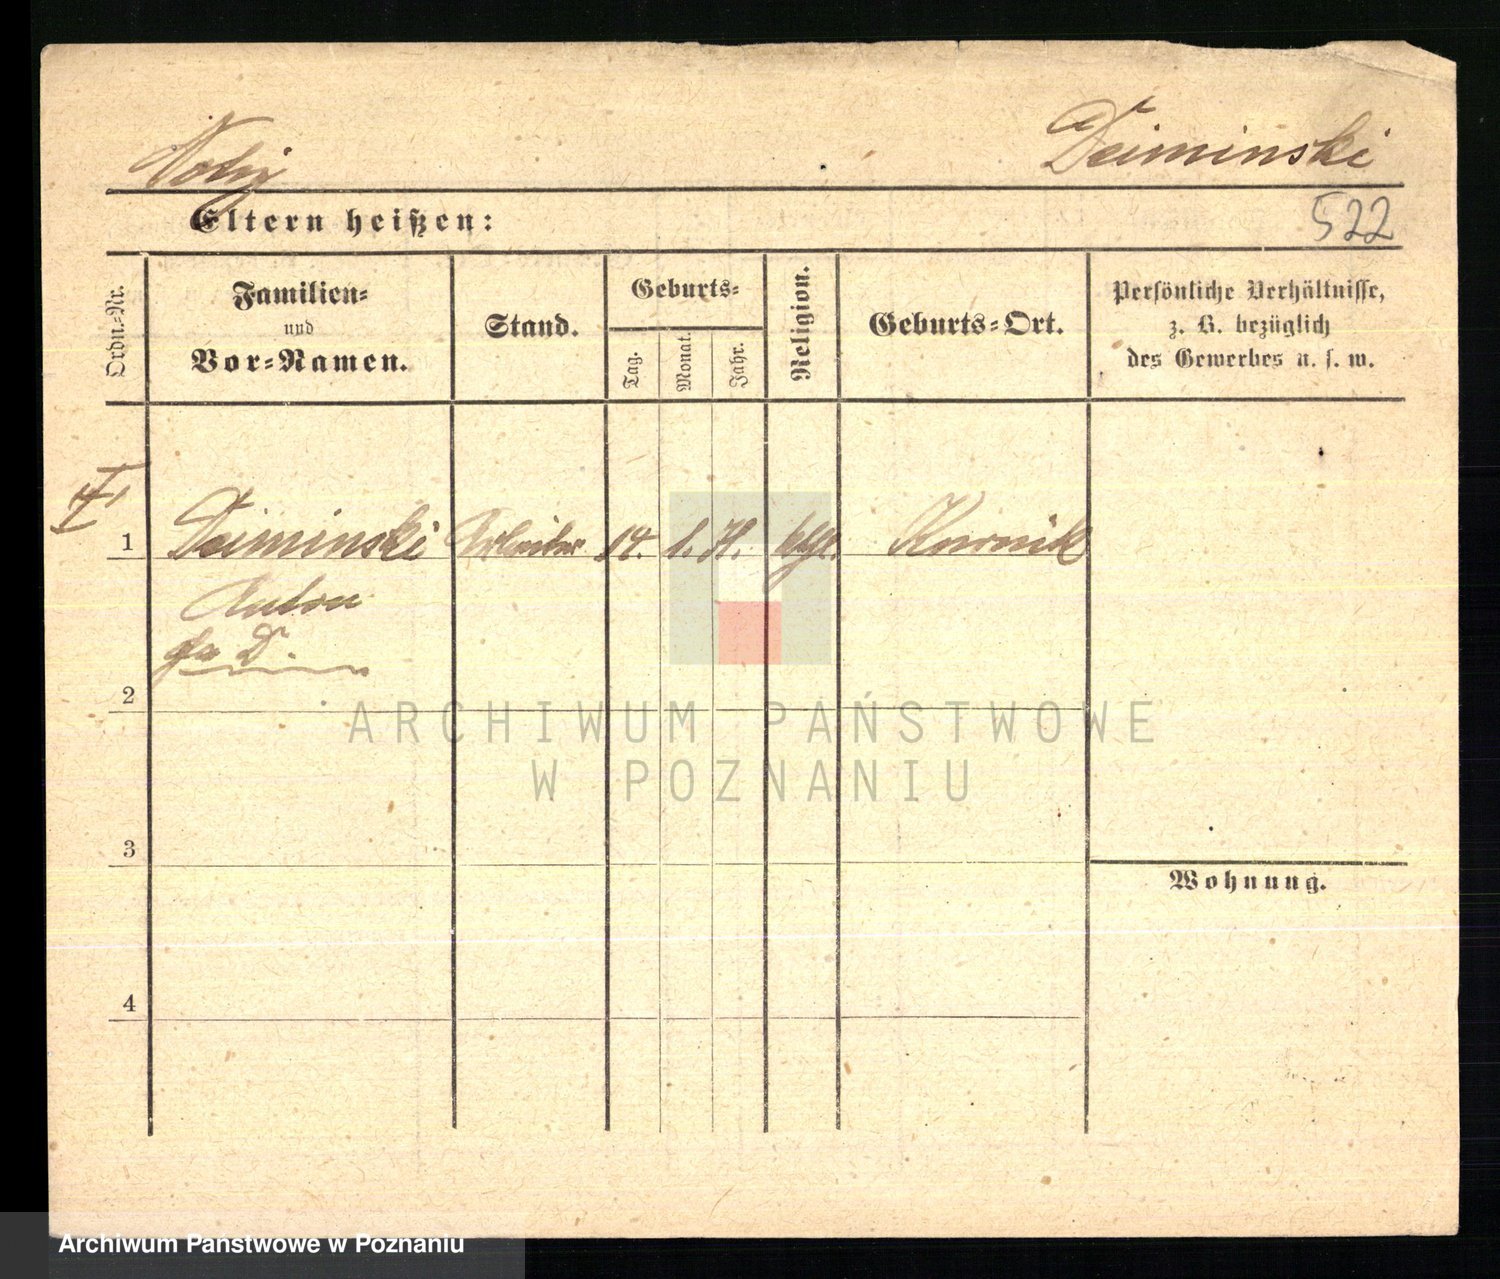 Notiz
Deiminski
Eltern heißen:
522
Ordn.-Nr.
Familien-
und
Vor-Namen.
Stand.
Geburts-
Tag.
Monat.
Jahr.
Religion.
Geburts-Ort.
Persönliche Verhältnisse,
z. B. bezüglich
des Gewerbes u. s. w.
1 Deiminski Arbeiter 14. 1. 71. kath. Kurnik
Anton
D.
2
3
Wohnung.
4
ARCHIWUM PAŃSTWOWE
W POZNANIU
Archiwum Państwowe w Poznaniu